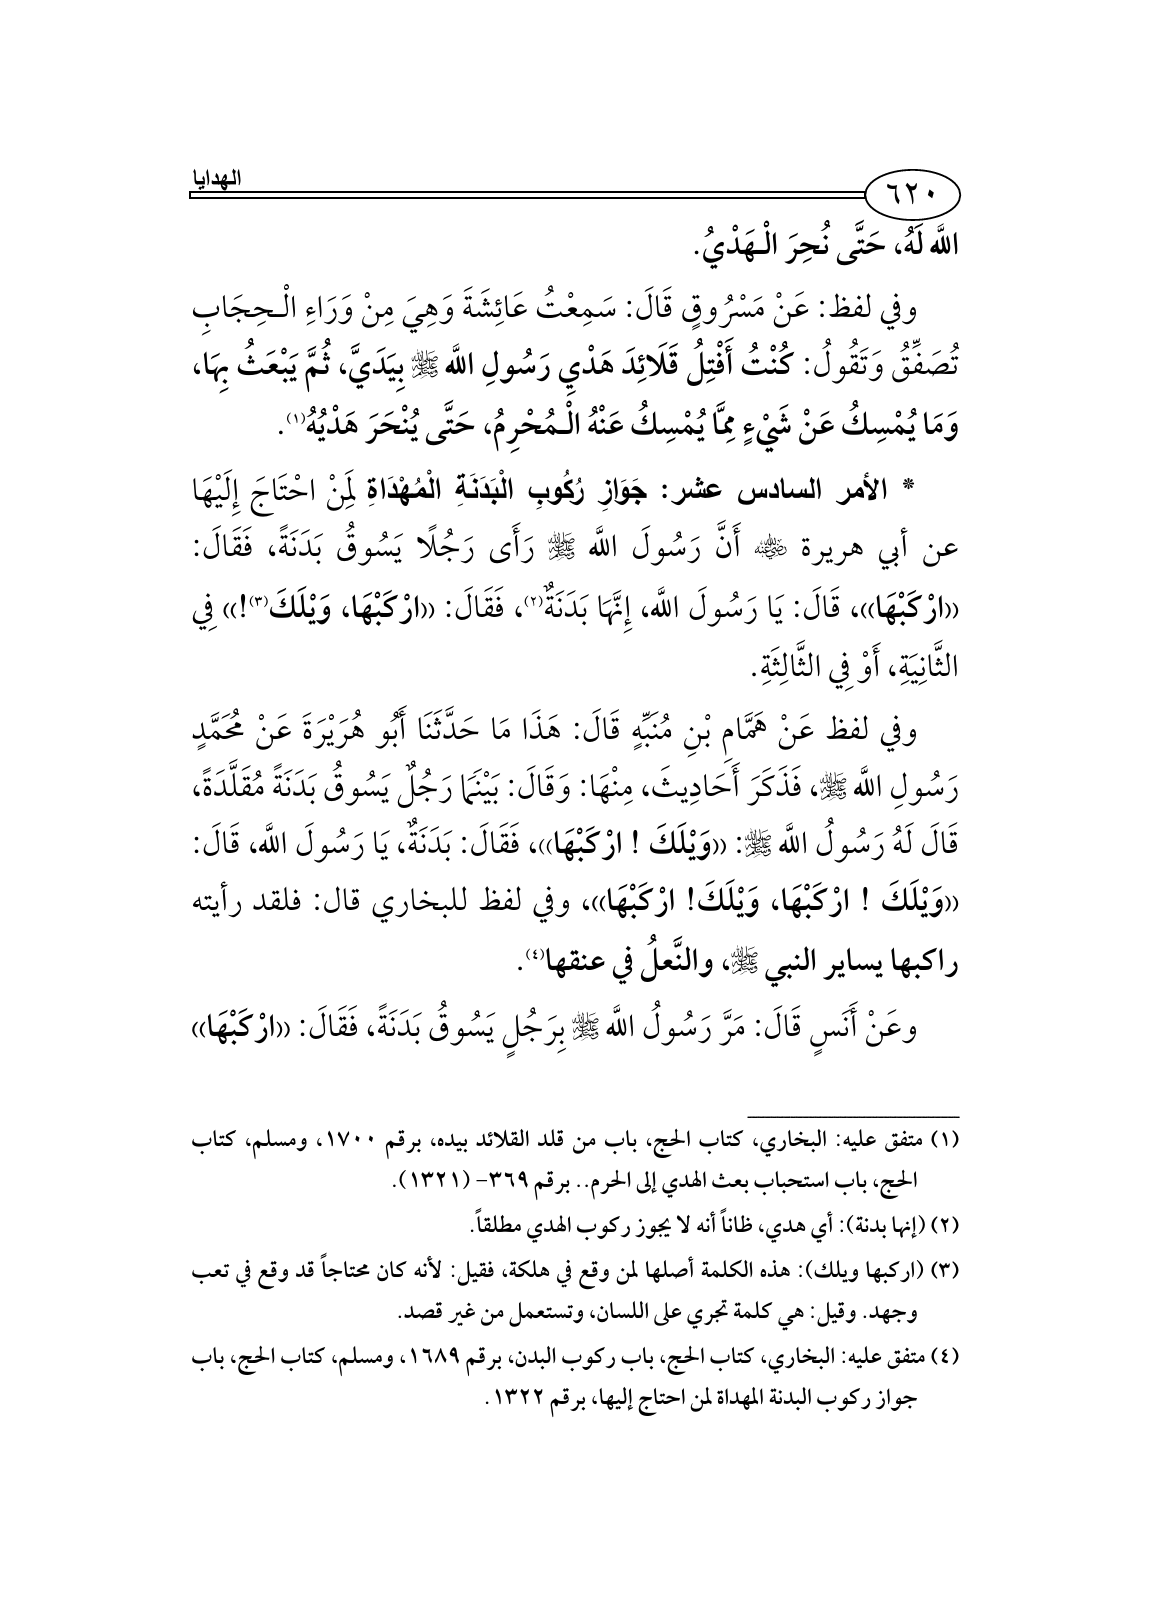 ٦٢٠
الهدايا
اللَّه لَهُ، حَتَّى نُحِرَ الْـهَدْيُ.
وفي لفظ: عَنْ مَسْرُوقٍ قَالَ: سَمِعْتُ عَائِشَةَ وَهِيَ مِنْ وَرَاءِ الْـحِجَابِ
تُصَفِّقُ وَتَقُولُ: كُنْتُ أَفْتِلُ قَلَائِدَ هَدْيِ رَسُولِ اللَّه ﷺ بِيَدَيَّ، ثُمَّ يَبْعَثُ بِهَا،
وَمَا يُمْسِكُ عَنْ شَيْءٍ مِمَّا يُمْسِكُ عَنْهُ الْـمُحْرِمُ، حَتَّى يُنْحَرَ هَدْيُهُ(١).
* الأمر السادس عشر: جَوَازِ رُكُوبِ الْبَدَنَةِ الْمُهْدَاةِ لِمَنْ احْتَاجَ إِلَيْهَا
عن أبي هريرة ﵁ أَنَّ رَسُولَ اللَّه ﷺ رَأَى رَجُلًا يَسُوقُ بَدَنَةً، فَقَالَ:
((ارْكَبْهَا))، قَالَ: يَا رَسُولَ اللَّه، إِنَّهَا بَدَنَةٌ(٢)، فَقَالَ: ((ارْكَبْهَا، وَيْلَكَ(٣)!)) فِي
الثَّانِيَةِ، أَوْ فِي الثَّالِثَةِ.
وفي لفظ عَنْ هَمَّامِ بْنِ مُنَبِّهٍ قَالَ: هَذَا مَا حَدَّثَنَا أَبُو هُرَيْرَةَ عَنْ مُحَمَّدٍ
رَسُولِ اللَّه ﷺ، فَذَكَرَ أَحَادِيثَ، مِنْهَا: وَقَالَ: بَيْنَمَا رَجُلٌ يَسُوقُ بَدَنَةً مُقَلَّدَةً،
قَالَ لَهُ رَسُولُ اللَّه ﷺ: ((وَيْلَكَ ! ارْكَبْهَا))، فَقَالَ: بَدَنَةٌ، يَا رَسُولَ اللَّه، قَالَ:
((وَيْلَكَ ! ارْكَبْهَا، وَيْلَكَ! ارْكَبْهَا))، وفي لفظ للبخاري قال: فلقد رأيته
راكبها يساير النبي ﷺ، والنَّعلُ في عنقها(٤).
وعَنْ أَنَسٍ قَالَ: مَرَّ رَسُولُ اللَّه ﷺ بِرَجُلٍ يَسُوقُ بَدَنَةً، فَقَالَ: ((ارْكَبْهَا))
(١) متفق عليه: البخاري، كتاب الحج، باب من قلد القلائد بيده، برقم ١٧٠٠، ومسلم، كتاب
الحج، باب استحباب بعث الهدي إلى الحرم.. برقم ٣٦٩- (١٣٢١).
(٢) (إنها بدنة): أي هدي، ظاناً أنه لا يجوز ركوب الهدي مطلقاً.
(٣) (اركبها ويلك): هذه الكلمة أصلها لمن وقع في هلكة، فقيل: لأنه كان محتاجاً قد وقع في تعب
وجهد. وقيل: هي كلمة تجري على اللسان، وتستعمل من غير قصد.
(٤) متفق عليه: البخاري، كتاب الحج، باب ركوب البدن، برقم ١٦٨٩، ومسلم، كتاب الحج، باب
جواز ركوب البدنة المهداة لمن احتاج إليها، برقم ١٣٢٢.